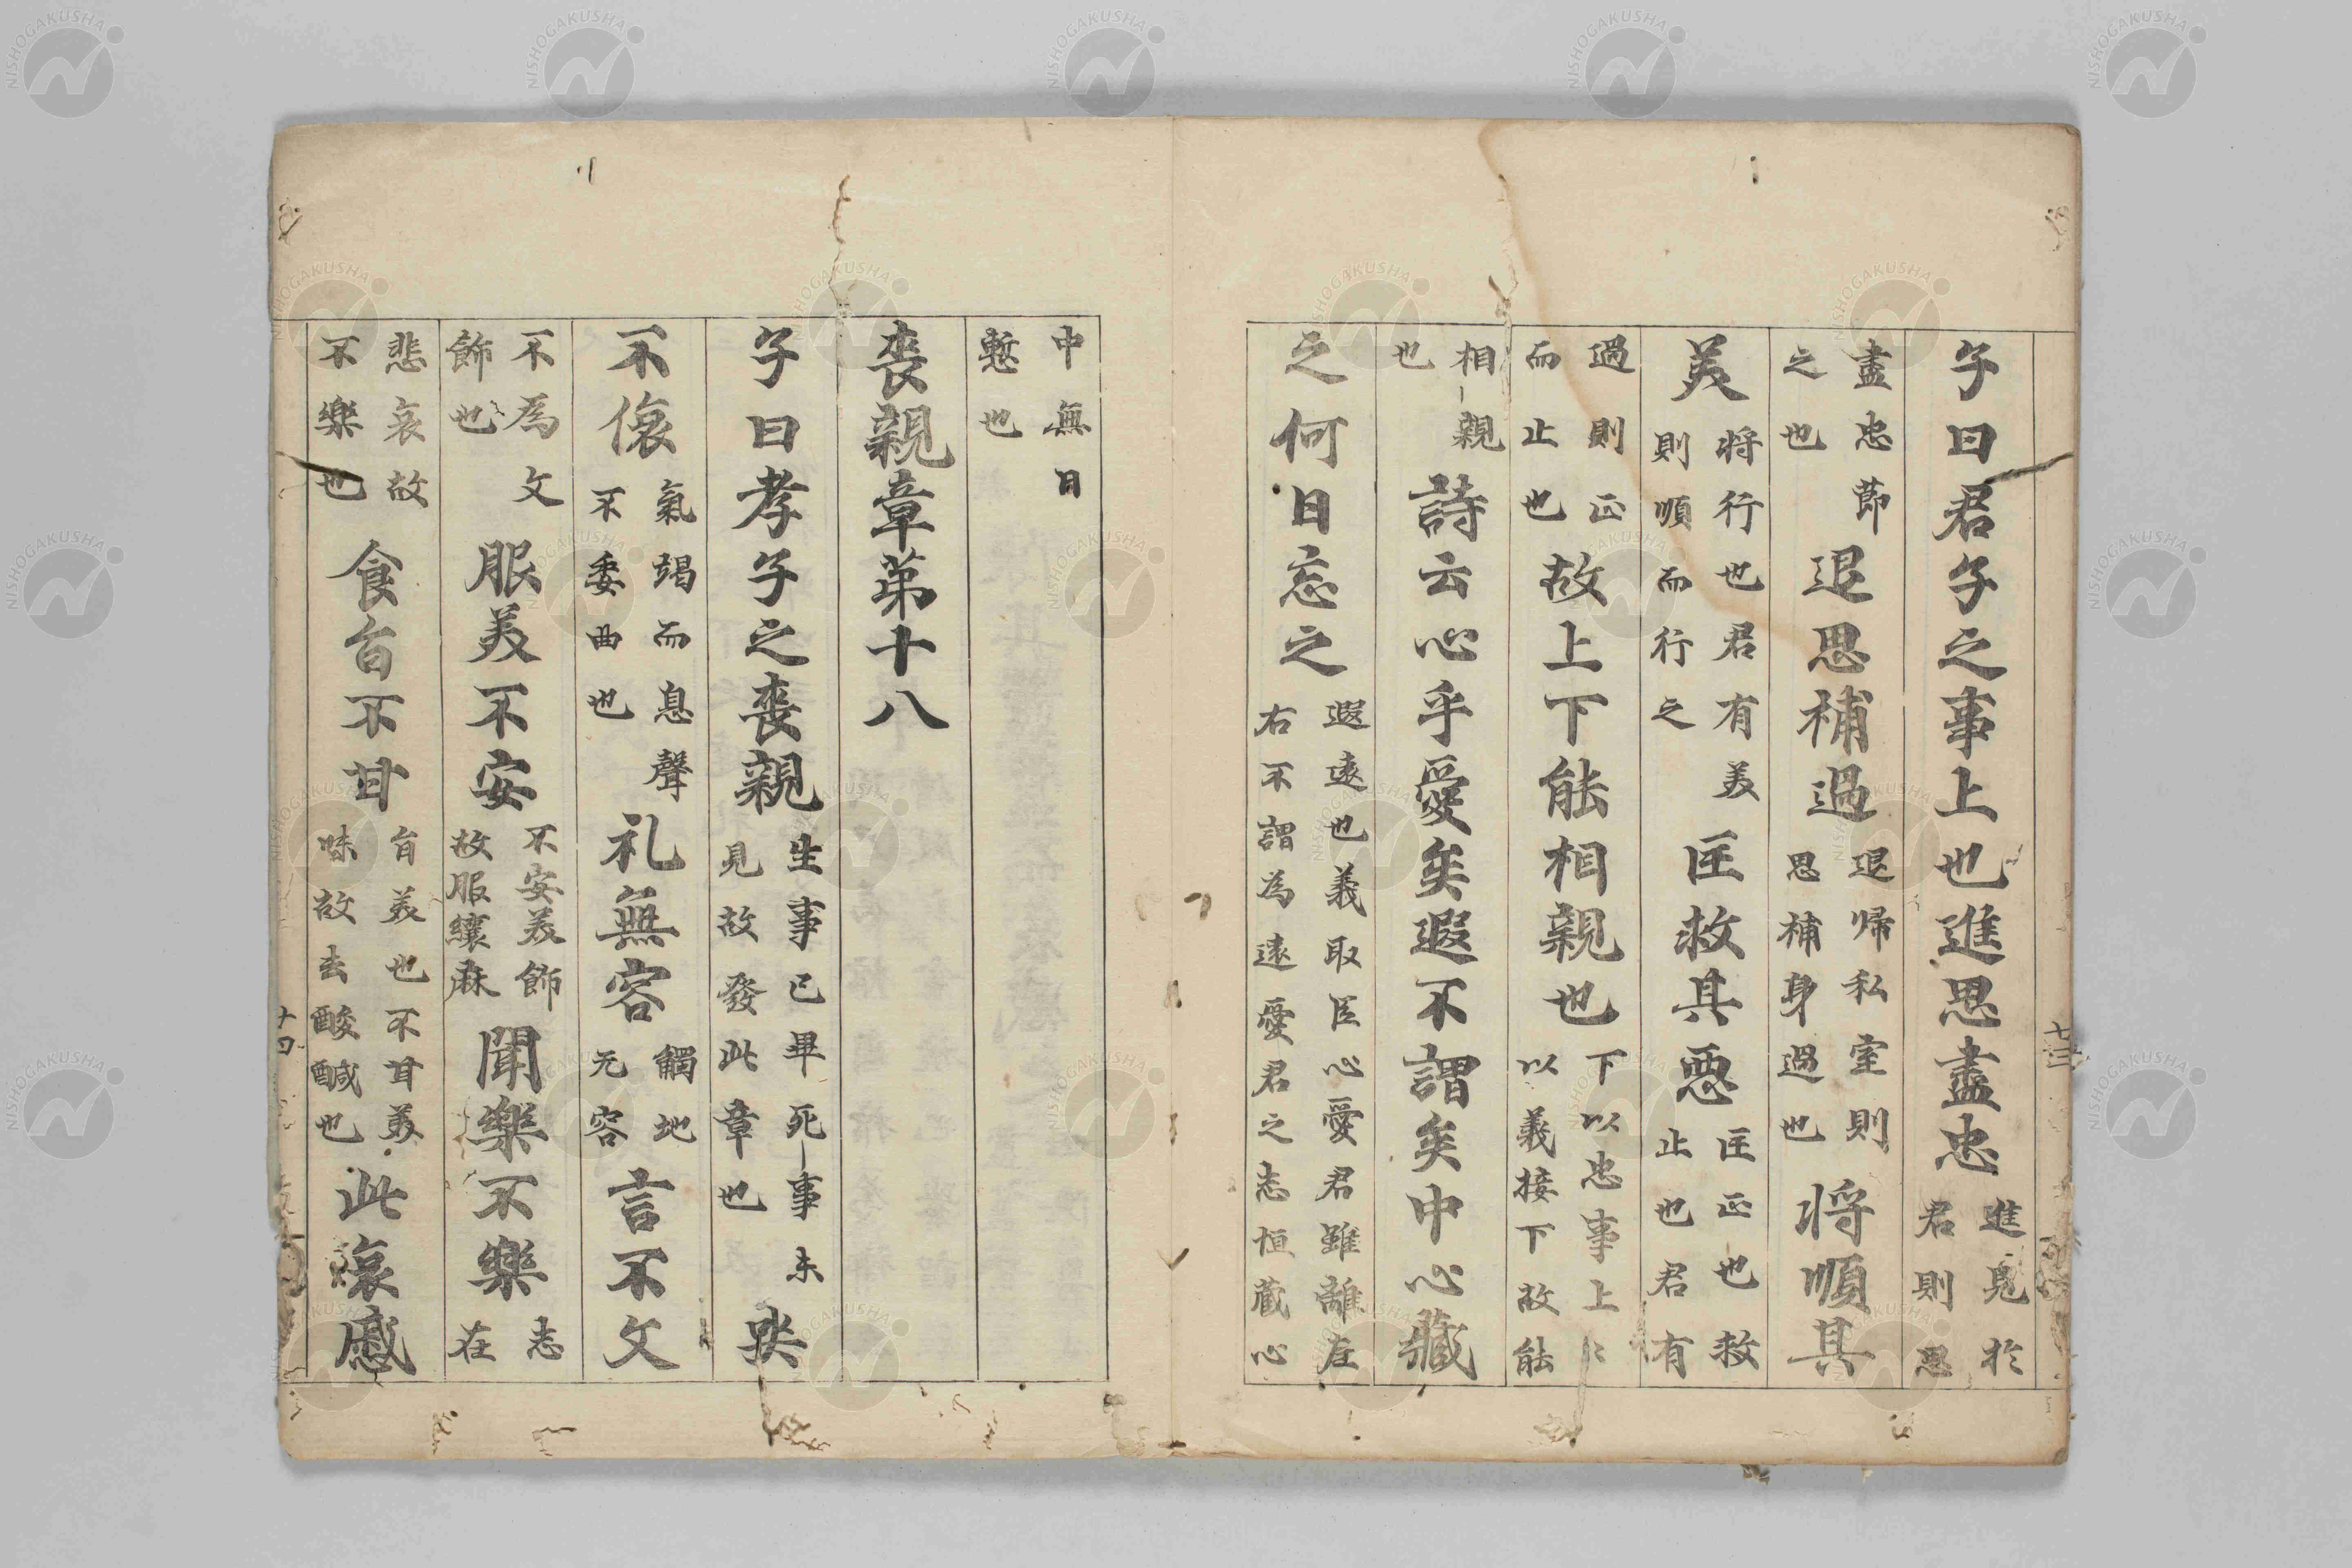 子曰君子之事上也進思盡忠進見於君則思
盡忠節之也退思補過退帰私室則思補身過也将順其
美将行也君有美則順而行之匡救其惡匡正也救止也君有
過則正而止也故上下能相親也下以忠事上〻以義接下故能
相親也詩云心乎愛矣遐不謂矣中心藏
之何日忘之遐遠也義取臣心愛君雖離左右不謂為遠愛君之志恒蔵心
中無日慙也
喪親章苐十八
子曰孝子之喪親生事已畢死事未見故發此章也哭
不偯氣竭而息聲不委曲也礼無容觸地无容言不文
不為文飾也服美不安不安美飾故服縗麻聞樂不樂志在
悲哀故不樂也食旨不甘旨美也不甘美味故去酸醎也此哀慼
十四
NISHOGAKUSHA